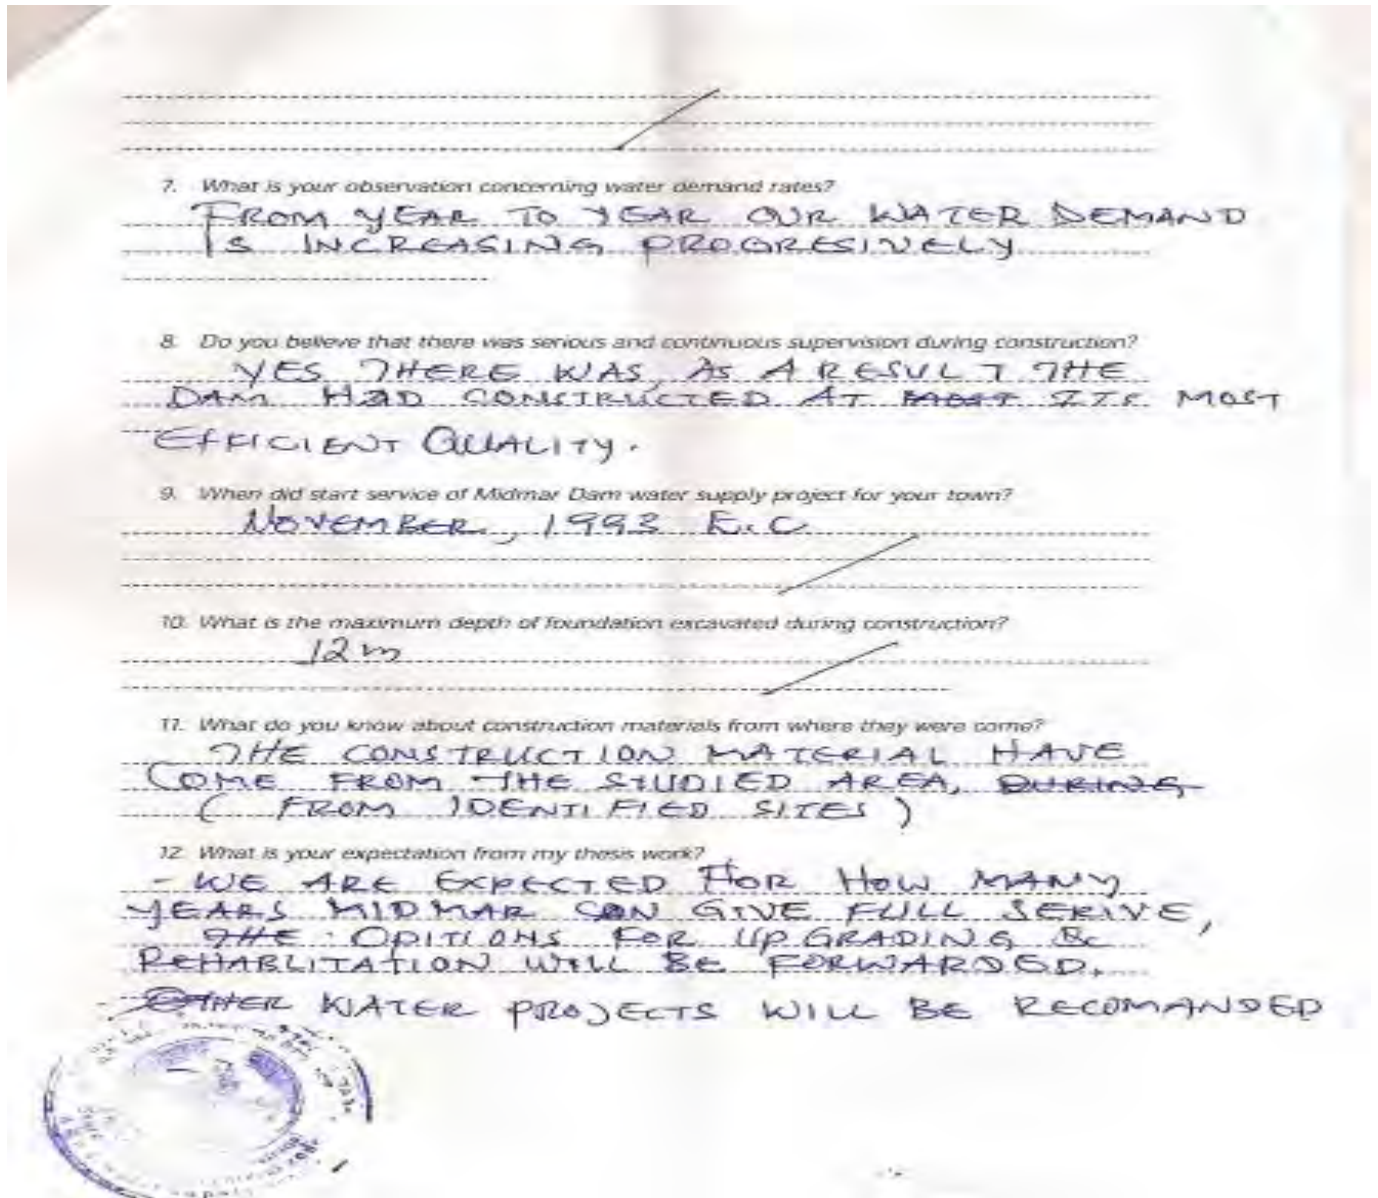 7. What is your observation concerning water demand rates?
FROM YEAR TO YEAR OUR WATER DEMAND
IS INCREASING PROGRESIVELY
8. Do you believe that there was serious and continuous supervision during construction?
YES THERE WAS, AS A RESULT THE
DAM HAD CONSTRUCTED AT MOST ITS MOST
EFFICIENT QUALITY.
9. When did start service of Midmar Dam water supply project for your town?
NOVEMBER, 1993 E.C
10. What is the maximum depth of foundation excavated during construction?
12 m
11. What do you know about construction materials from where they were come?
THE CONSTRUCTION MATERIAL HAVE
COME FROM THE STUDIED AREA, DURING
( FROM IDENTIFIED SITES )
12. What is your expectation from my thesis work?
- WE ARE EXPECTED FOR HOW MANY
YEARS MIDMAR CAN GIVE FULL SERIVE,
THE OPITIONS FOR UPGRADING &
REHABLITATION WILL BE FORWARDED.
- OTHER WATER PROJECTS WILL BE RECOMANDED